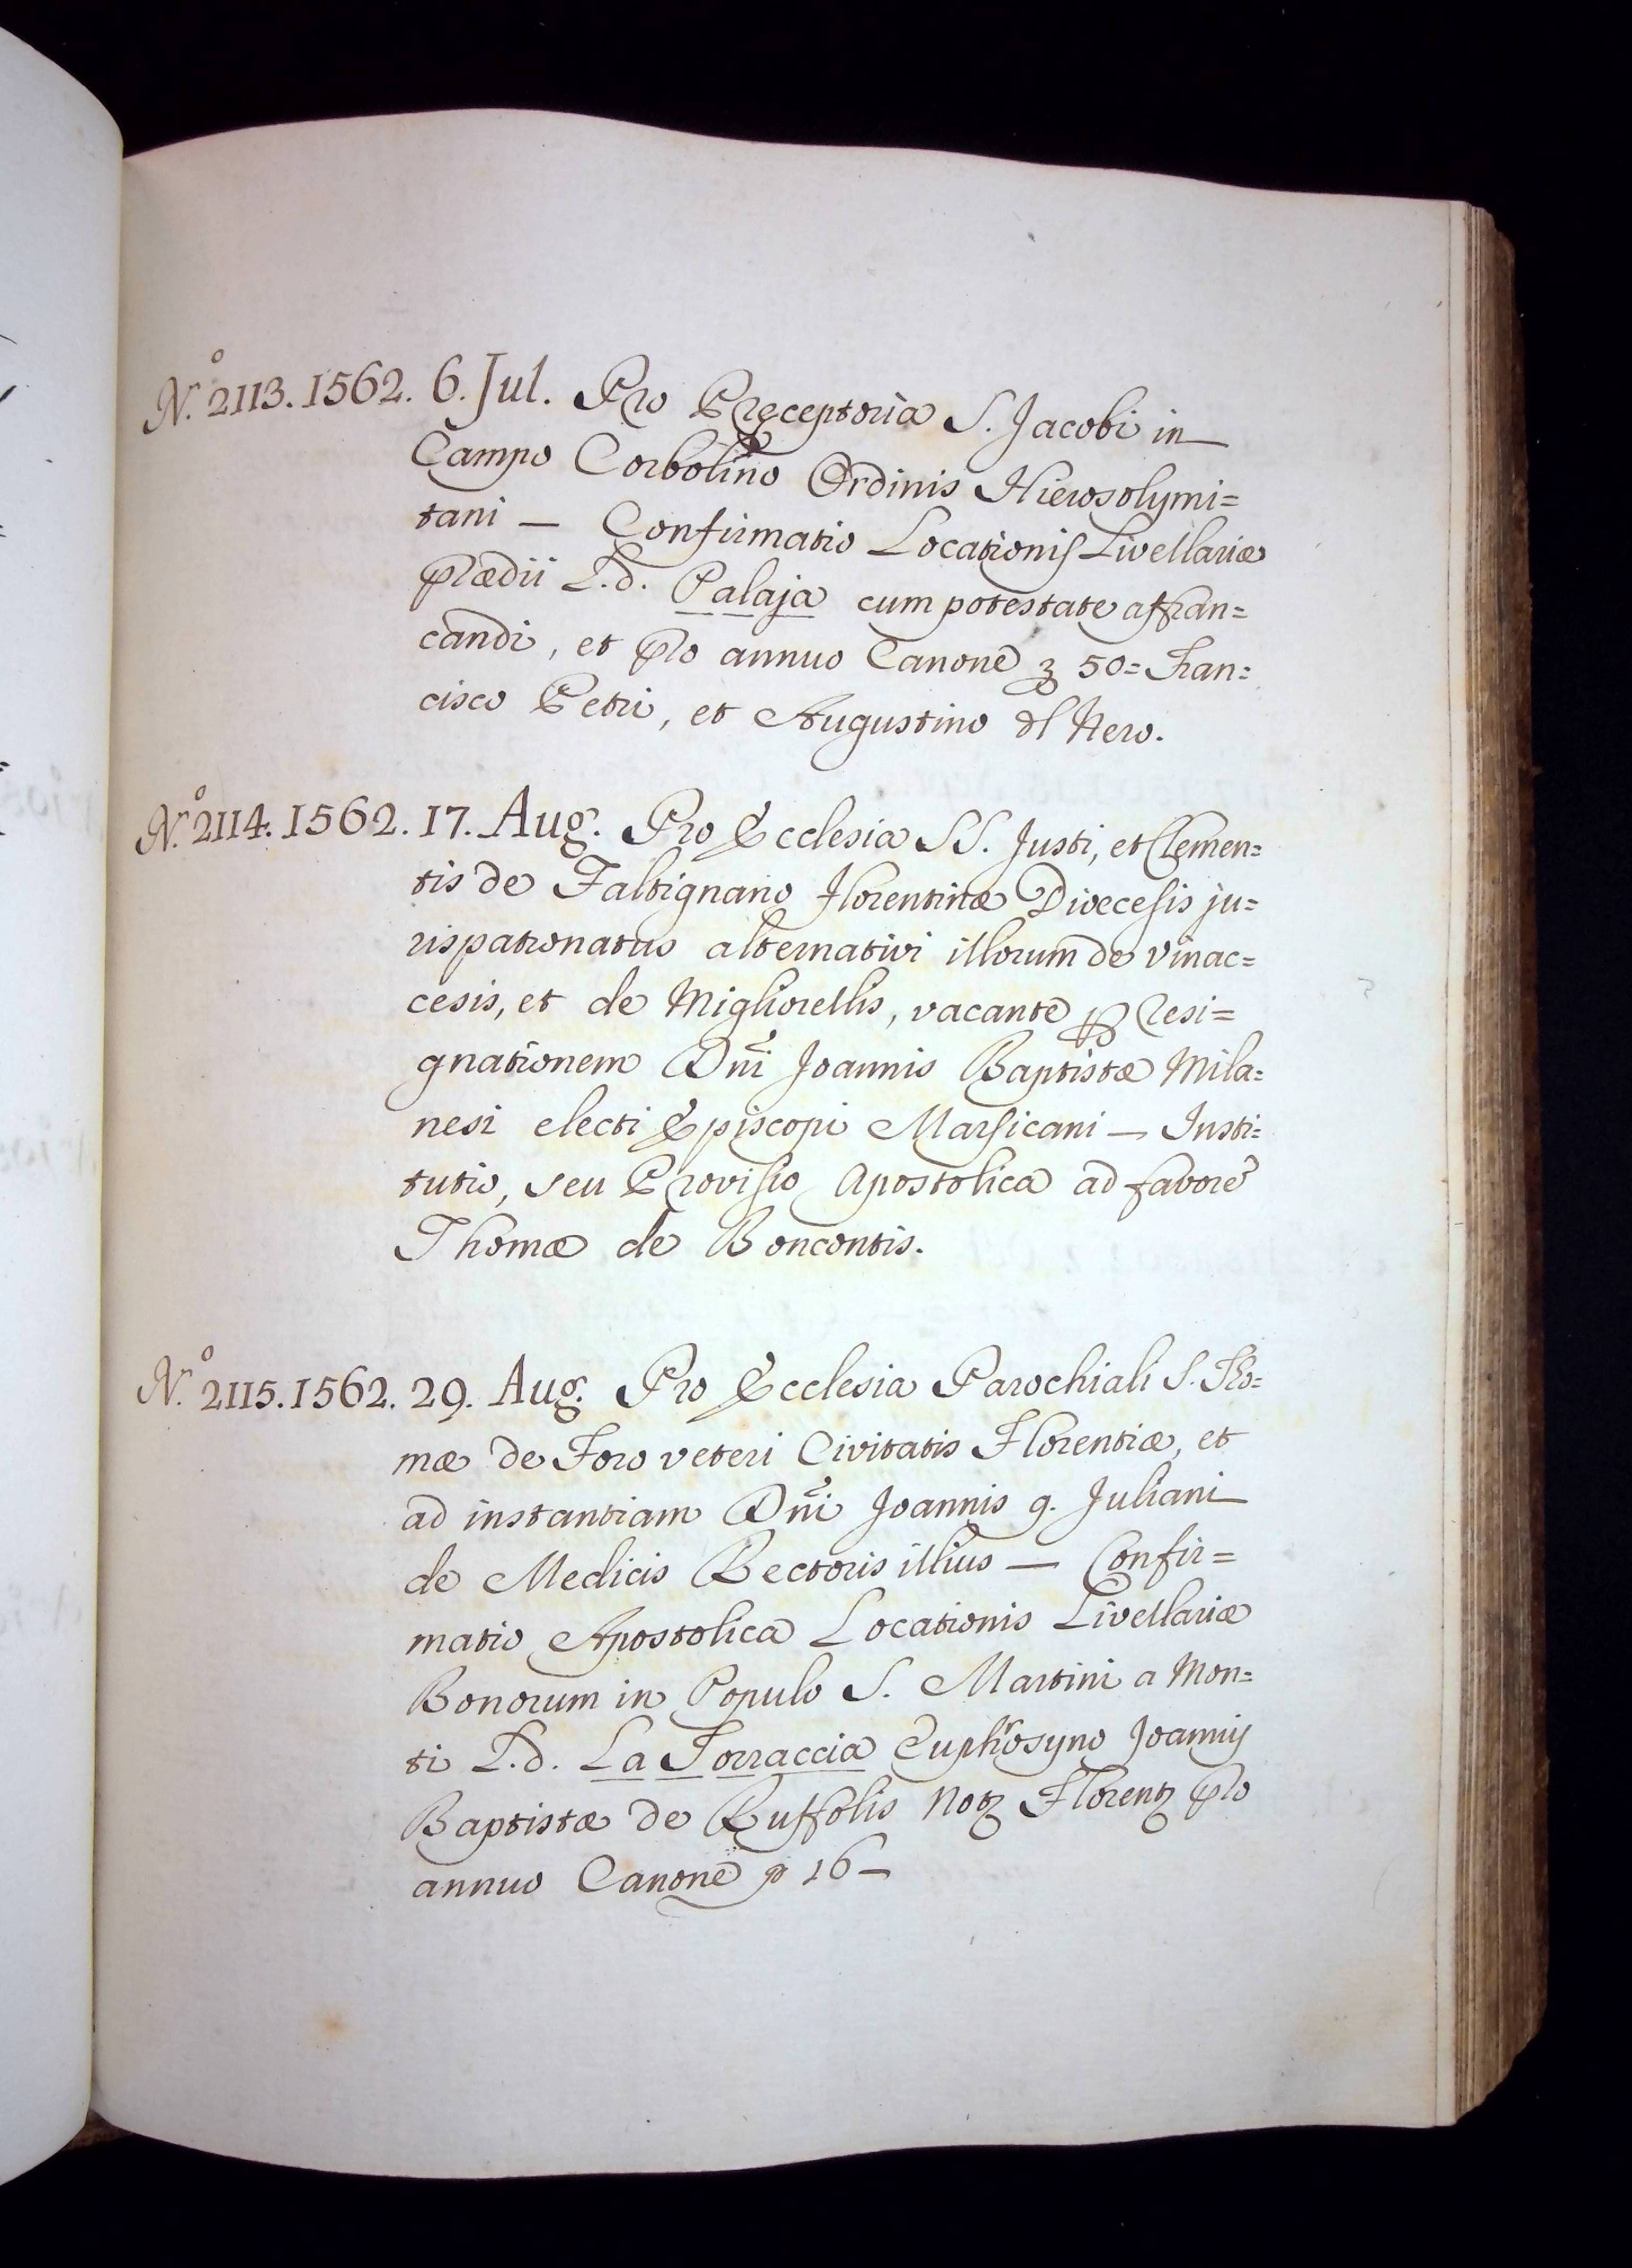 N.º 2113. 1562. 6. Jul. Pro Preceptoria S. Jacobi in
Campo Corbolino Ordinis Hierosolymi=
tani — Confirmatio Locationis Livellariæ
prædii L.d. Palaja cum potestate affran=
candi, et pro annuo Canone 50= Fran=
cisco Petri, et Augustino dl Nero.
N.º 2114. 1562. 17. Aug. Pro Ecclesia SS. Justi, et Clemen=
tis de Faltignano Florentinæ Diœcesis ju=
rispatronatus alternativi illorum de Vinac=
cesis, et de Migliorellis, vacante p resi=
gnationem Dni Joannis Baptistæ Mila=
nesi electi Episcopi Marsicani — Insti=
tutio, seu Provisio Apostolica ad favorē
Thomæ de Boncontis.
N.º 2115. 1562. 29. Aug. Pro Ecclesia Parochiali S. Tho=
mæ de Foro veteri Civitatis Florentiæ, et
ad instantiam Dni Joannis q. Juliani
de Medicis Rectoris illius — Confir=
matio Apostolica Locationis Livellariæ
Bonorum in Populo S. Martini a Mon=
ti L.d. La Torraccia Euphrosyno Joannis
Baptistæ de Ruffolis Notʒ Florentʒ pro
annuo Canone 16—